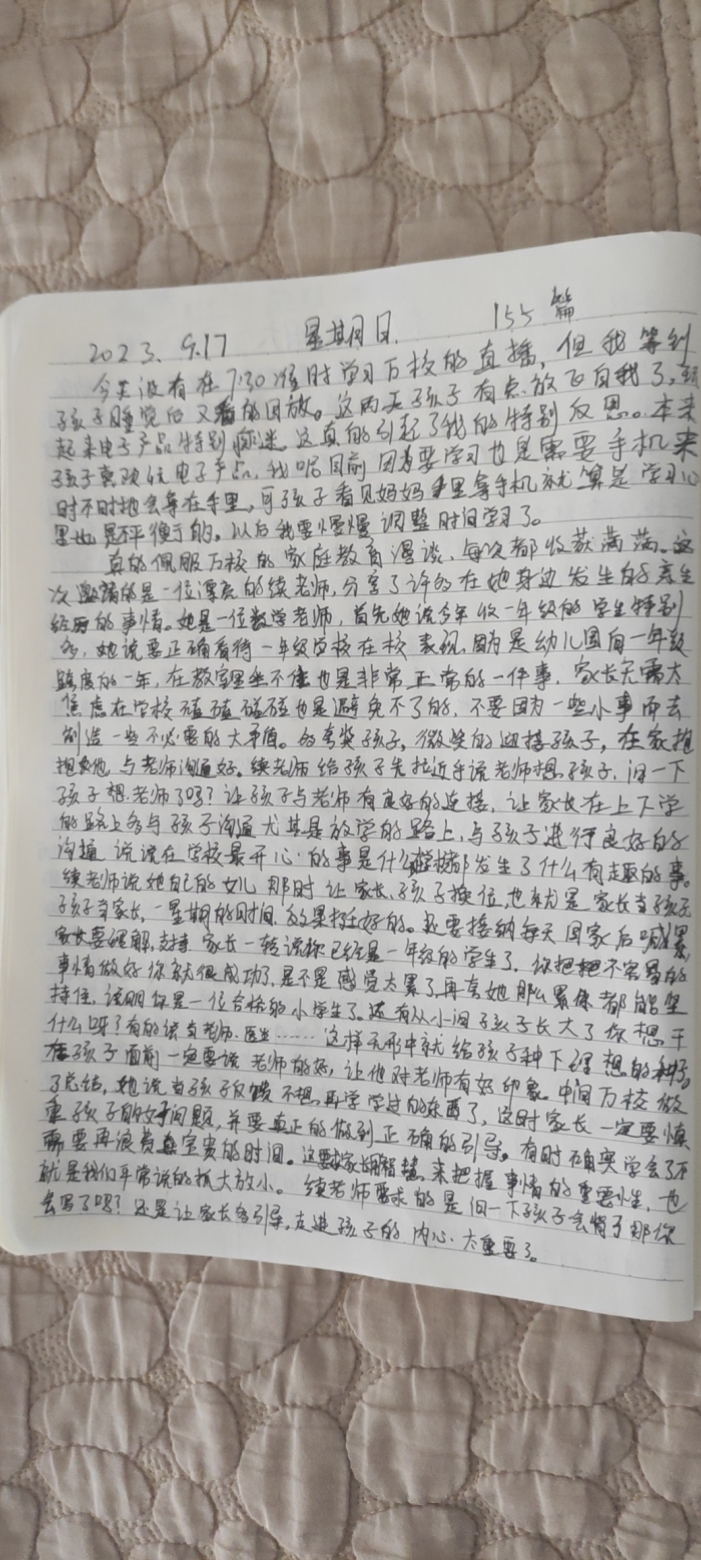 2023. 9.17 星期日. 155 篇
今天没有在7:30准时学习万校的直播，但我等到
孩子睡觉后又看的回放。这两天孩子有点放飞自我了，
起来电子产品特别痴迷 这真的引起了我的特别反思。本来
孩子喜欢玩电子产品，我呢目前因为要学习也是需要手机来
时不时地会拿在手里，可孩子看见妈妈手里拿手机就算是学习心
里也是不平衡的。以后我要慢慢调整时间学习了。
真的佩服万校的家庭教育漫谈，每次都收获满满。这
次邀请的是一位漂亮的续老师，分享了许多在她身边发生的
经历的事情。她是一位数学老师，首先她说今年收一年级的学生特别
多，她说要正确看待一年级学校在校表现，因为是幼儿园向一年级
跨度的一年，在教室里坐不住也是非常正常的一件事，家长无需太
焦虑在学校磕磕碰碰也是避免不了的，不要因为一些小事而去
制造一些不必要的大矛盾。多夸奖孩子，微笑的迎接孩子，在家抱
抱 他 与老师沟通好。续老师给孩子先拉近乎说老师想孩子，问一下
孩子想老师了吗？让孩子与老师有良好的连接，让家长在上下学
的路上多与孩子沟通尤其是放学的路上，与孩子进行良好的
沟通 说说在学校最开心的事是什么 学校都发生了什么有趣的事。
续老师说她自己的女儿那时让家长、孩子换位，也就是家长当孩子
孩子当家长，一星期的时间 效果挺好的。还要接纳每天回家后喊累，
家长要理解，支持 家长一转说你已经是一年级的学生了，你把把不容易的
事情做好你就很成功了，是不是感觉太累了，再 她那么累你都能坚
持住，说明你是一位合格的小学生了。还有从小问孩子长大了你想干
什么呀？有的说当老师、医生…… 这样无形中就给孩子种下理想的种子。
在孩子面前一定要说老师的好，让他对老师有好印象。中间万校做
了总结，她说当孩子反馈不想再学学过的东西了，这时家长一定要慎
重孩子的 问题，并要真正的做到正确的引导。有时确实学会了不
需要再浪费 宝贵的时间。这要求家长 智慧，来把握事情的重要性，也
就是我们平常说的抓大放小。续老师要求的是问一下孩子会背了那你
会写了吗？还是让家长多引导，走进孩子的内心. 太重要了。